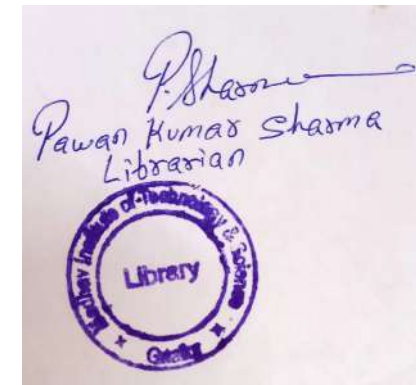 P. Sharma
Pawan Kumar Sharma
Librarian
Madhav Institute of Technology & Science
Library
Gwalior